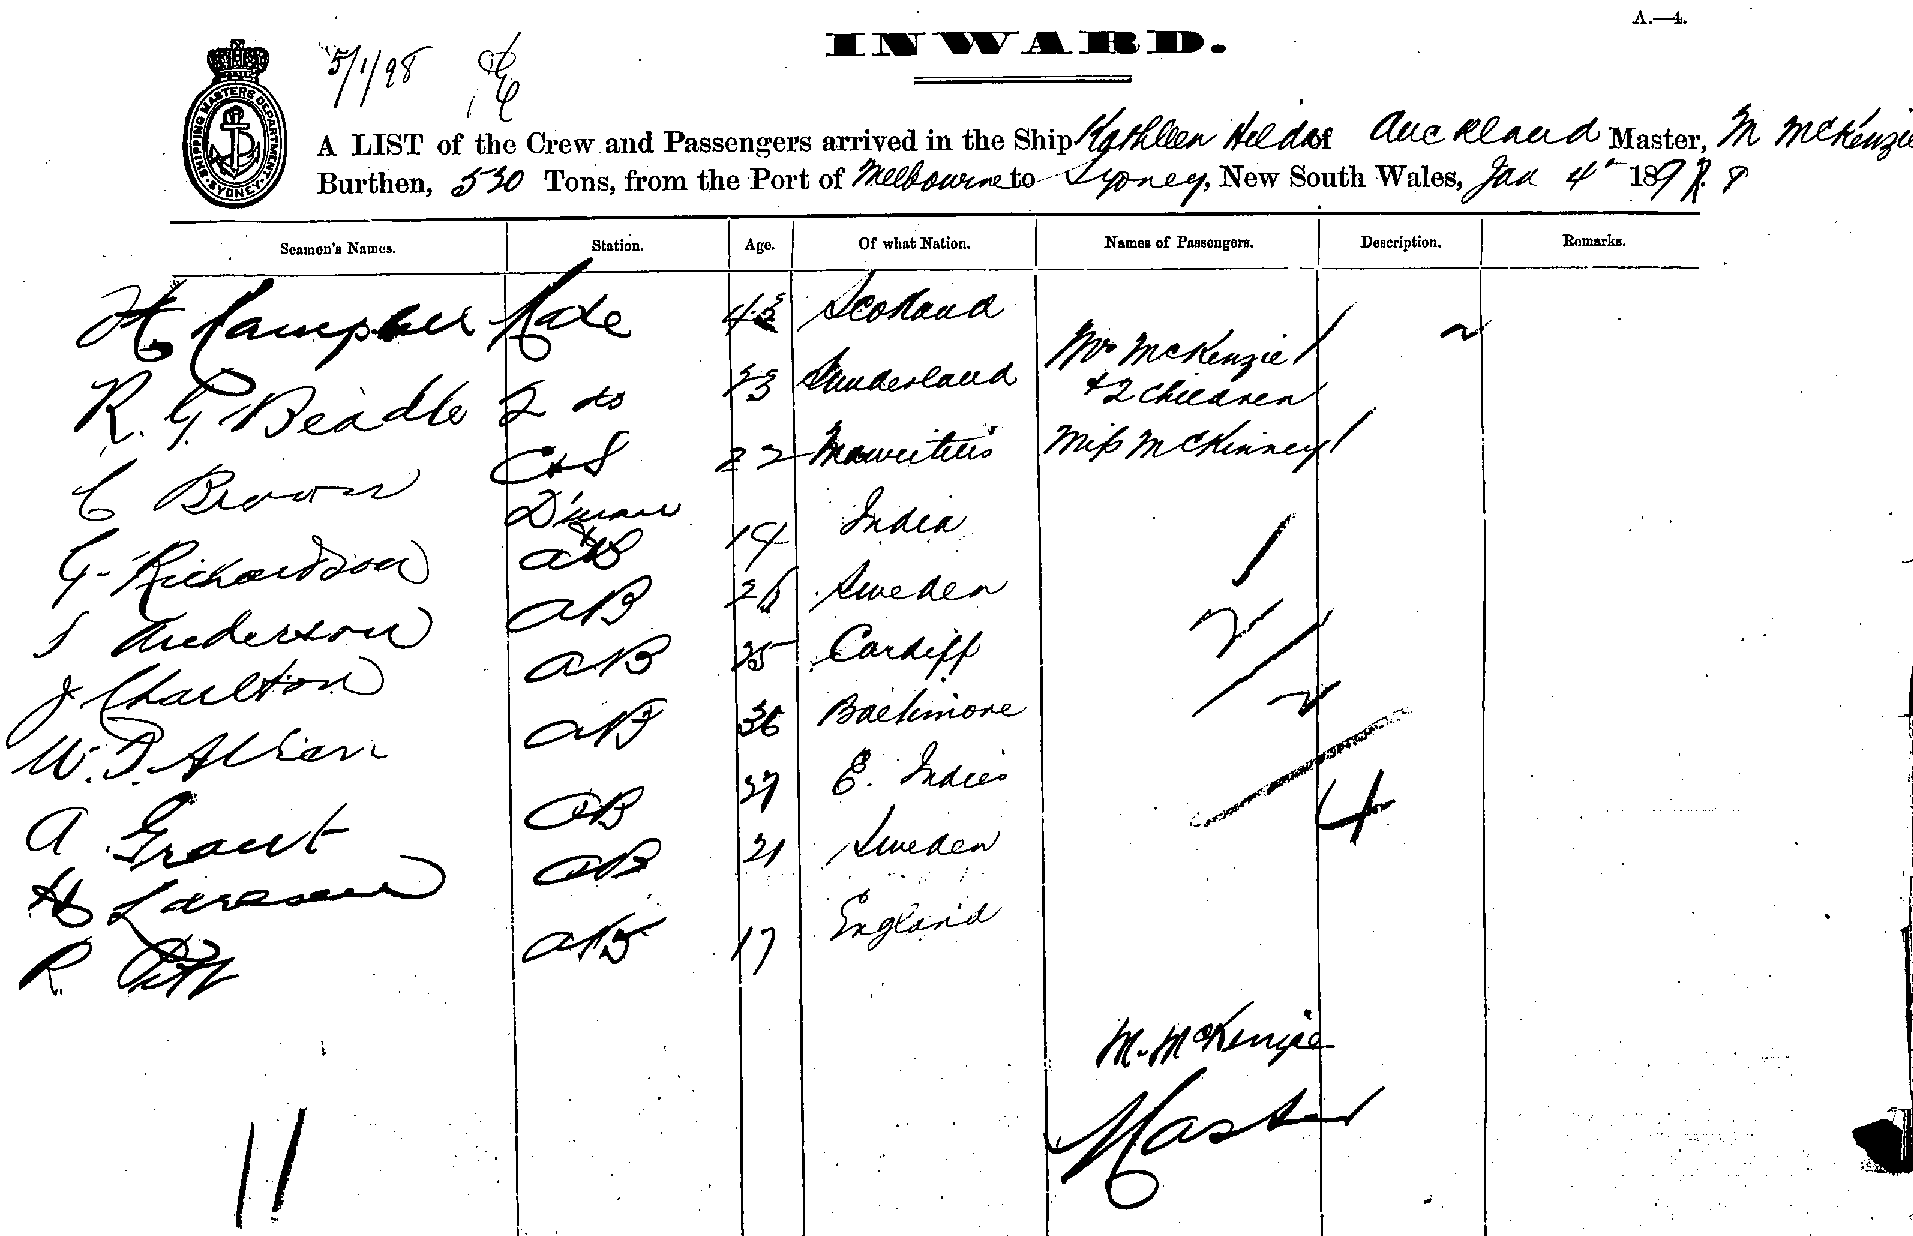 A.—4.
INWARD.
5/1/98
SHIPPING MASTERS DEPARTMENT SYDNEY
A LIST of the Crew and Passengers arrived in the Ship Kathleen Hilda of Auckland Master, M McKenzie
Burthen, 530 Tons, from the Port of Melbourne to Sydney, New South Wales, Jan 4th 1898
Seamen's Names. Station. Age. Of what Nation. Names of Passengers. Description. Remarks.
H Campbell Mate 43 Scotland
Mrs McKenzie 1 2
R. G. Beadle 2 do 23 Sunderland & 2 Children
C Brown C & S 22 Mauritius Miss McKinney 1
G Richardson D'man 19 India
S Anderson AB 26 Sweden 1
J Charlton AB 25 Cardiff 2
W. T. Allen AB 36 Baltimore 2
A Grant AB 27 E. Indies
H Larssen AB 21 Sweden 4
R. Pitt AB 17 England
M. McKenzie
Master
11